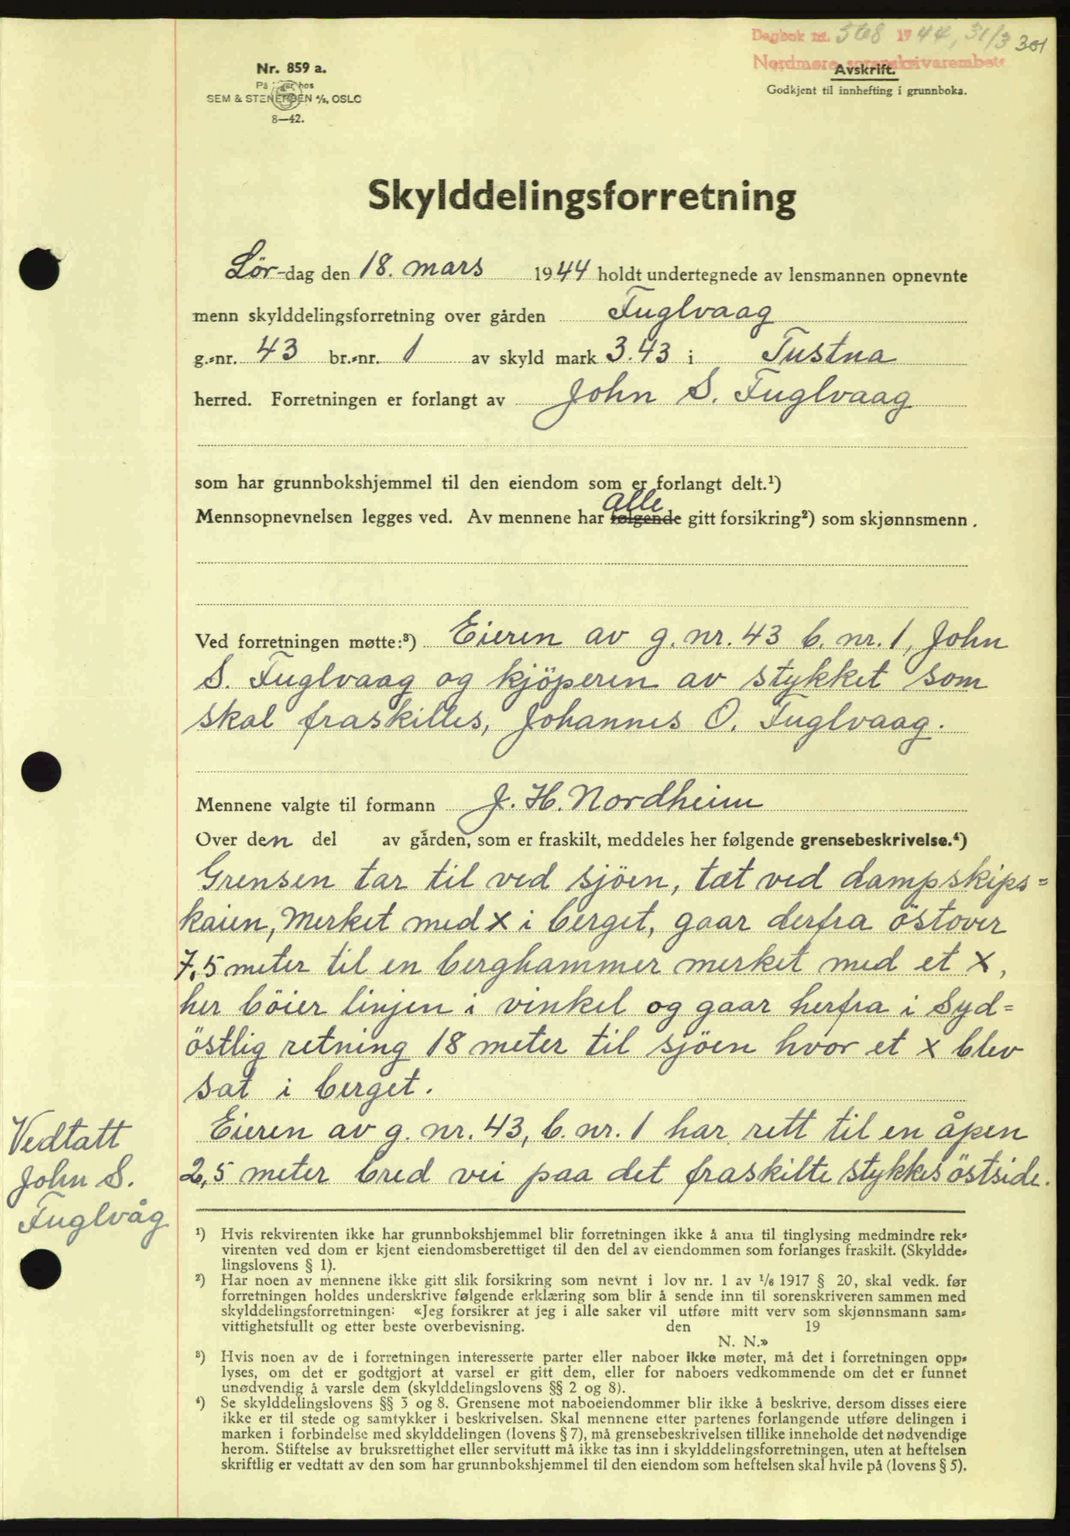 Dagbok nr. 568 1944, 31/3 301
Nordmøre sorenskrivarembete
Nr. 859 a.
På lager hos
SEM & STENERSEN A/S, OSLO
8—42.
Avskrift.
Godkjent til innhefting i grunnboka.
Skylddelingsforretning
Lör-dag den 18. mars 1944 holdt undertegnede av lensmannen opnevnte
menn skylddelingsforretning over gården Fuglvaag
g.-nr. 43 br.-nr. 1 av skyld mark 3.43 i Tustna
herred. Forretningen er forlangt av John S. Fuglvaag
som har grunnbokshjemmel til den eiendom som er forlangt delt.¹)
alle
Mennsopnevnelsen legges ved. Av mennene har følgende gitt forsikring²) som skjønnsmenn.
Ved forretningen møtte:³) Eieren av g. nr. 43 b. nr. 1, John
S. Fuglvaag og kjöperen av stykket som
skal fraskilles, Johannes O. Fuglvaag.
Mennene valgte til formann J. H. Nordheim
Over den del av gården, som er fraskilt, meddeles her følgende grensebeskrivelse.⁴)
Grensen tar til ved sjöen, tæt ved dampskips=
kaien, merket med X i berget, gaar derfra östover
7,5 meter til en berghammer merket med et X,
her böier linjen i vinkel og gaar herfra i Syd=
östlig retning 18 meter til sjöen hvor et X blev
sat i berget.
Eieren av g. nr. 43, b. nr. 1 har rett til en åpen
2,5 meter bred vei paa det fraskilte stykkes östside.
Vedtatt
John S.
Fuglvåg
¹) Hvis rekvirenten ikke har grunnbokshjemmel blir forretningen ikke å anta til tinglysing medmindre rek-
virenten ved dom er kjent eiendomsberettiget til den del av eiendommen som forlanges fraskilt. (Skyldde-
lingslovens § 1).
²) Har noen av mennene ikke gitt slik forsikring som nevnt i lov nr. 1 av 1/6 1917 § 20, skal vedk. før
forretningen holdes underskrive følgende erklæring som blir å sende inn til sorenskriveren sammen med
skylddelingsforretningen: «Jeg forsikrer at jeg i alle saker vil utføre mitt verv som skjønnsmann sam-
vittighetsfullt og etter beste overbevisning. den 19
N. N.»
³) Hvis noen av de i forretningen interesserte parter eller naboer ikke møter, må det i forretningen opp-
lyses, om det er godtgjort at varsel er gitt dem, eller for naboers vedkommende om det er funnet
unødvendig å varsle dem (skylddelingslovens §§ 2 og 8).
⁴) Se skylddelingslovens §§ 3 og 8. Grensene mot naboeiendommer blir ikke å beskrive, dersom disses eiere
ikke er til stede og samtykker i beskrivelsen. Skal mennene etter partenes forlangende utføre delingen i
marken i forbindelse med skylddelingen (lovens § 7), må grensebeskrivelsen tillike inneholde det nødvendige
herom. Stiftelse av bruksrettighet eller servitutt må ikke tas inn i skylddelingsforretningen, uten at heftelsen
skriftlig er vedtatt av den som har grunnbokshjemmel til den eiendom som heftelsen skal hvile på (lovens § 5).